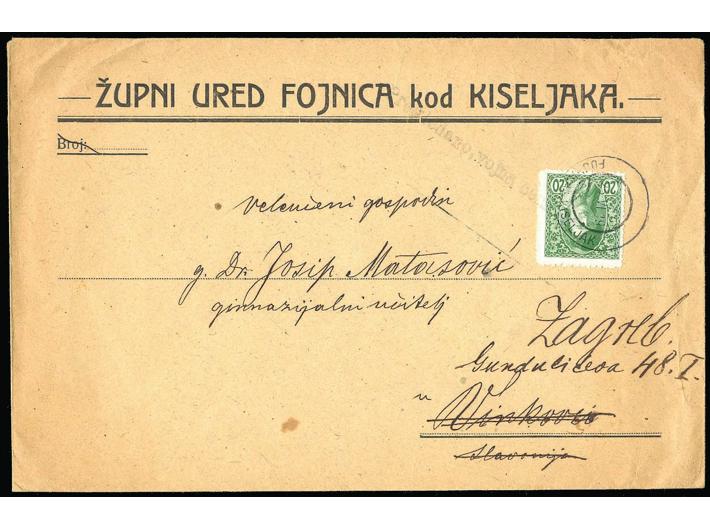 ŽUPNI URED FOJNICA kod KISELJAKA.
Broj:
Velenčeni gospodin
g. Dr Josip Matasović
gimnazijalni učitelj
Zagreb.
Gundulićeva 48. I.
u Vinkovci
Slavonija
20 20